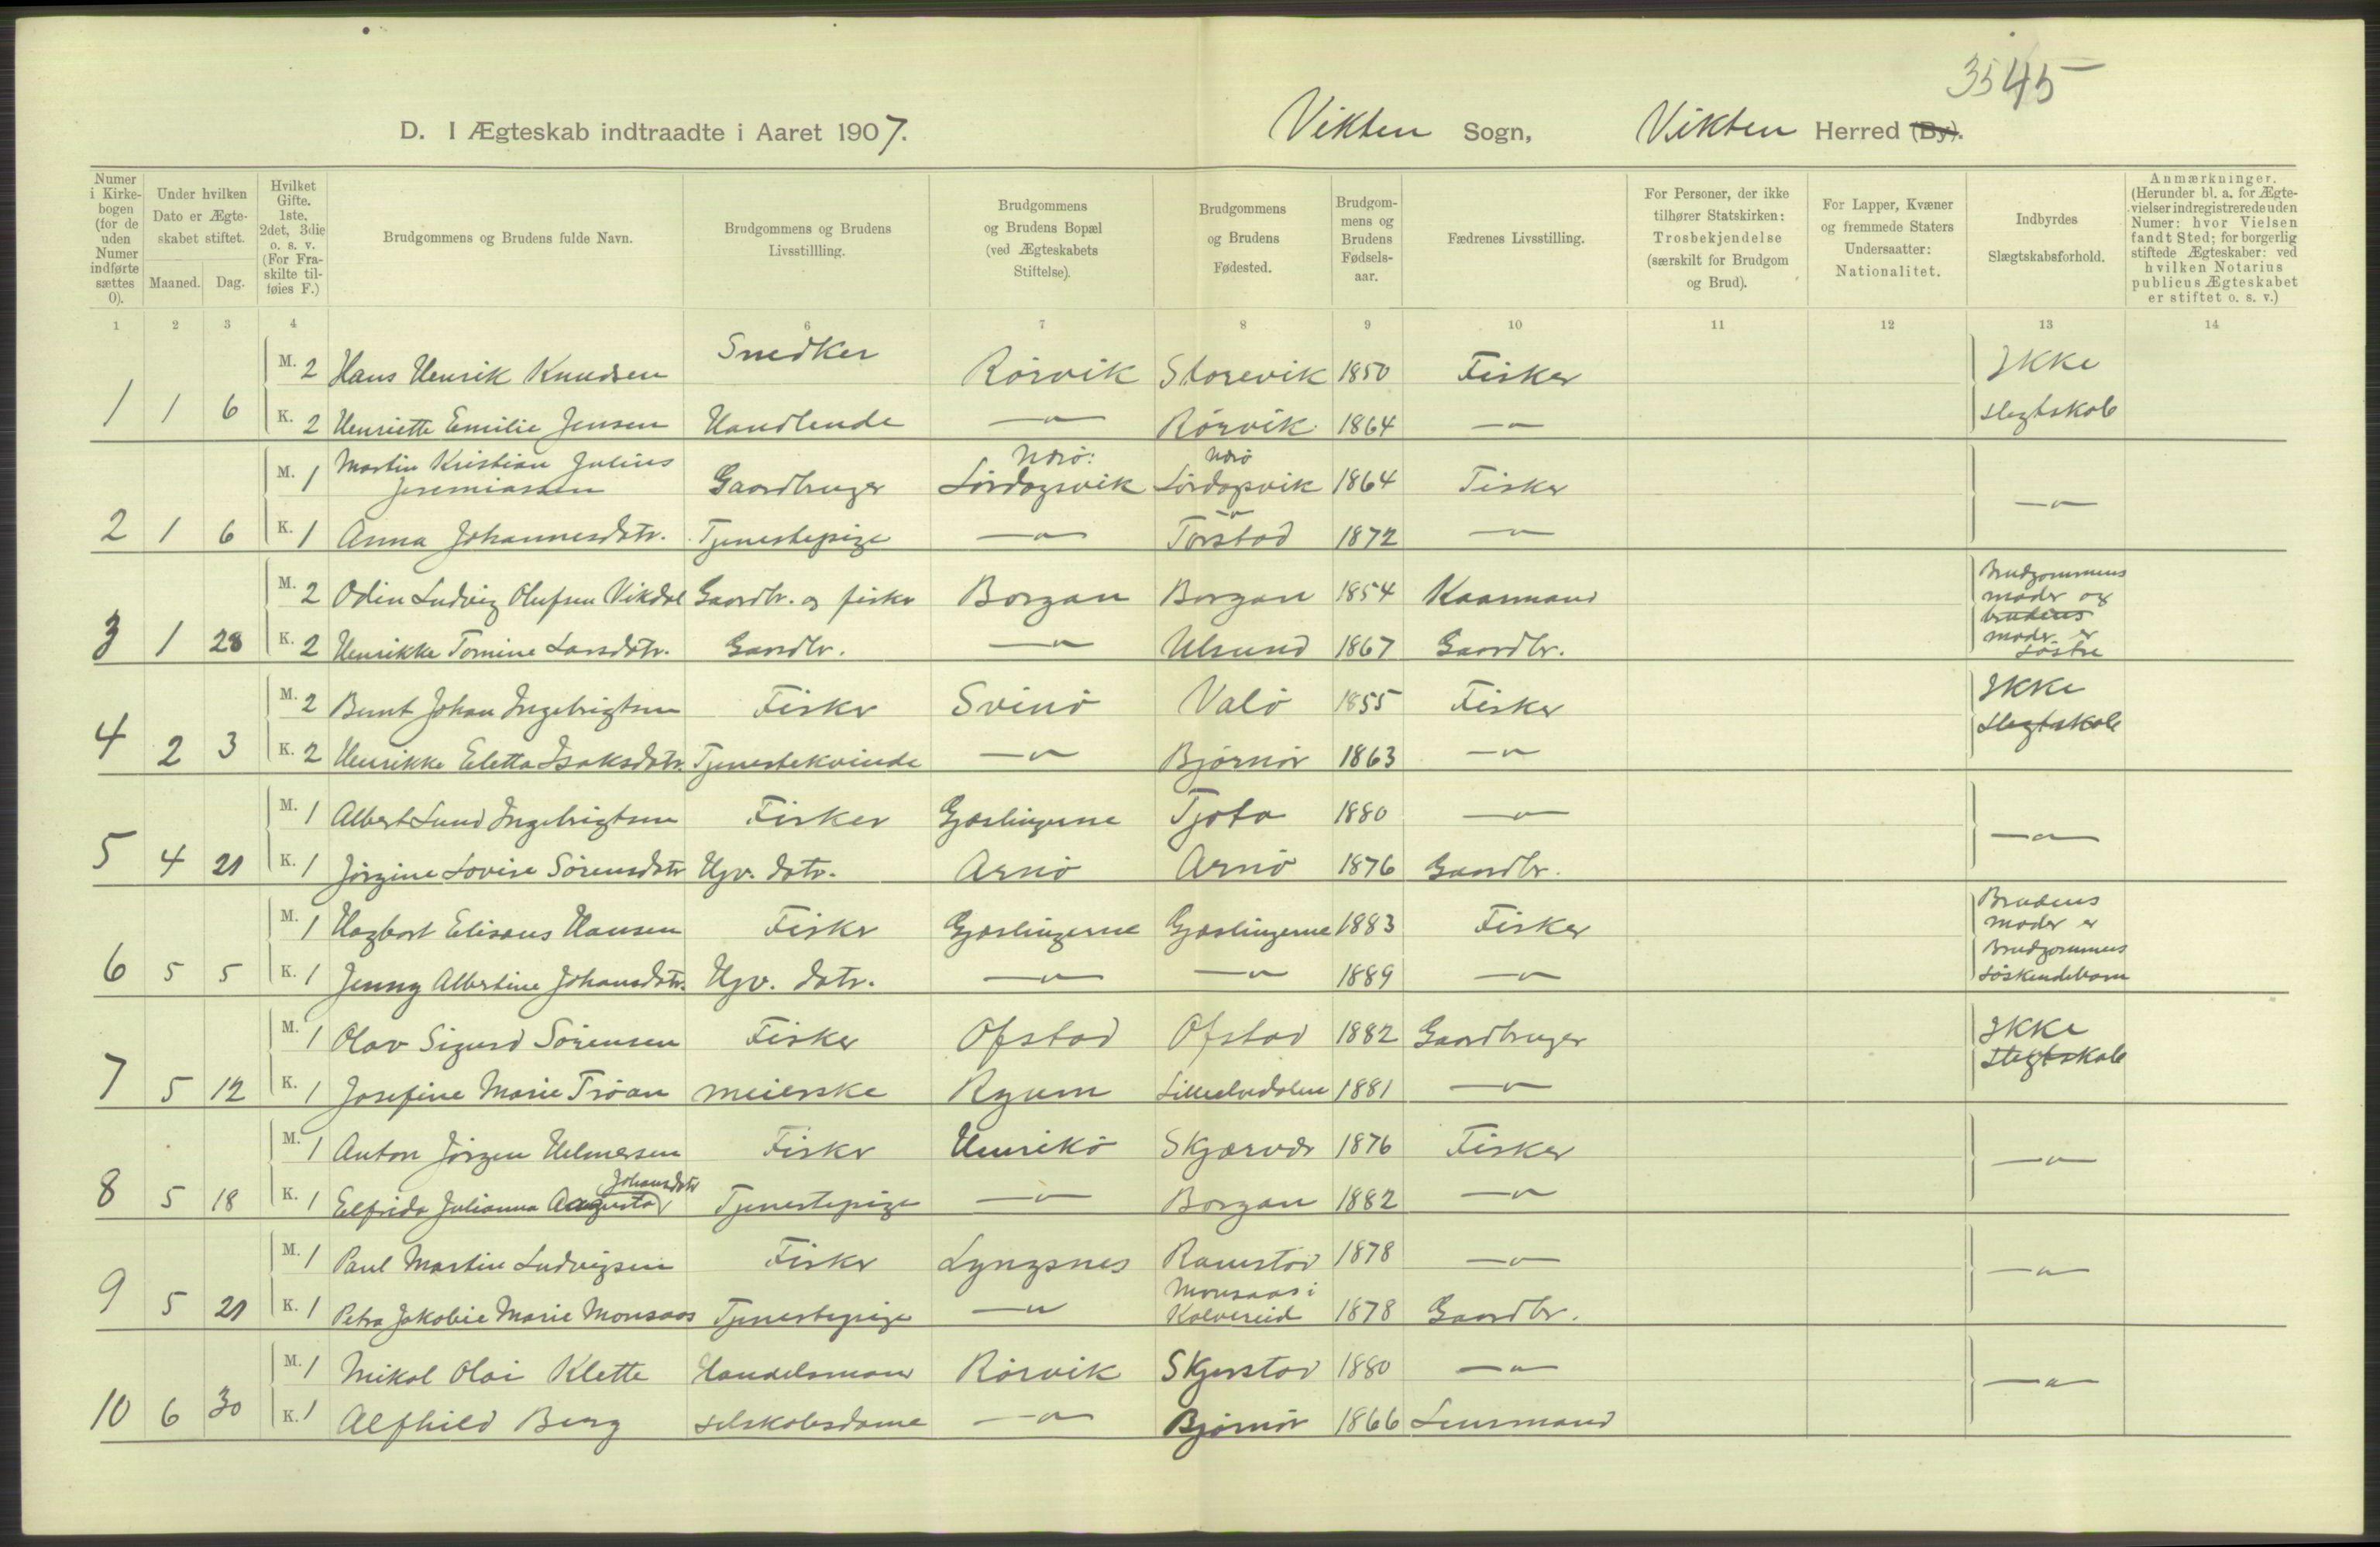 3545
D. I Ægteskab indtraadte i Aaret 1907. Vikten Sogn, Vikten Herred (By).
Numer i Kirkebogen (for de uden Numer indførte sættes 0).
Under hvilken Dato er Ægteskabet stiftet.
Maaned. Dag.
Hvilket Gifte. 1ste, 2det, 3die o. s. v. (For Fraskilte tilføies F.)
Brudgommens og Brudens fulde Navn.
Brudgommens og Brudens Livsstillling.
Brudgommens og Brudens Bopæl (ved Ægteskabets Stiftelse).
Brudgommens og Brudens Fødested.
Brudgommens og Brudens Fødselsaar.
Fædrenes Livsstilling.
For Personer, der ikke tilhører Statskirken: Trosbekjendelse (særskilt for Brudgom og Brud).
For Lapper, Kvæner og fremmede Staters Undersaatter: Nationalitet.
Indbyrdes Slægtskabsforhold.
Anmærkninger. (Herunder bl. a. for Ægtevielser indregistrerede uden Numer: hvor Vielsen fandt Sted; for borgerlig stiftede Ægteskaber: ved hvilken Notarius publicus Ægteskabet er stiftet o. s. v.)
1 2 3 4 6 7 8 9 10 11 12 13 14
M. 2 Hans Henrik Knudsen Snedker Rörvik Storevik 1850 Fisker Ikke
1 1 6 K. 2 Henriette Emilie Jensen Handlende —"— Rörvik 1864 —"— slegtskab
M. 1 Martin Kristian Julius Jeremiassen Gaardbruger Nærö: Lördagsvik Nærö Lördagsvik 1864 Fisker —"—
2 1 6 K. 1 Anna Johannesdatr. Tjenestepige —"— —"— Torstad 1872 —"—
M. 2 Odin Ludvig Olufsen Vikdal Gaardbr. og fisker Borgan Borgan 1854 Kaarmand Brudgommens moder og brudens moder er søstre
3 1 28 K. 2 Henrikke Tomine Larsdatr. Gaardbr. —"— Ulsund 1867 Gaardbr.
M. 2 Bernt Johan Ingebrigtsen Fisker Svinö Valö 1855 Fisker Ikke
4 2 3 K. 2 Henrikke Eletta Isaksdatr. Tjenestekvinde —"— Bjørnör 1863 —"— Slegtskab
M. 1 Albert Lund Ingebrigtsen Fisker Gjæslingerne Tjøta 1880 —"— —"—
5 4 21 K. 1 Jörgine Lovise Sörensdatr Hjv. datr. Arnö Arnö 1876 Gaardbr.
M. 1 Hagbart Elisæus Hansen Fisker Gjæslingerne Gjæslingerne 1883 Fisker Brudens moder er Brudgommens söskendebarn
6 5 5 K. 1 Jenny Albertine Johansdatr. Hjv. datr. —"— —"— 1889 —"—
M. 1 Olav Sigurd Sörensen Fisker Ofstad Ofstad 1882 Gaardbruger Ikke
7 5 12 K. 1 Josefine Marie Tröan meierske Ryum 1881 —"— Slegtskab
M. 1 Anton Jörgen Helmersen Fisker Henrikö Skjærvær 1876 Fisker —"—
8 5 18 K. 1 Elfrida Julianna Augusta Johansdatr Tjenestepige —"— Borgan 1882 —"—
M. 1 Paul Martin Ludvigsen Fisker Lyngsnes Ramstad 1878 —"— —"—
9 5 21 K. 1 Petra Jakobie Marie Monsaas Tjenestepige —"— Monsaas i Kolvereid 1878 Gaardbr.
M. 1 Mikal Olai Klette Handelsmand Rörvik Skjerstad 1880 —"— —"—
10 6 30 K. 1 Alfhild Berg selskabsdame —"— Bjørnör 1866 Lensmand